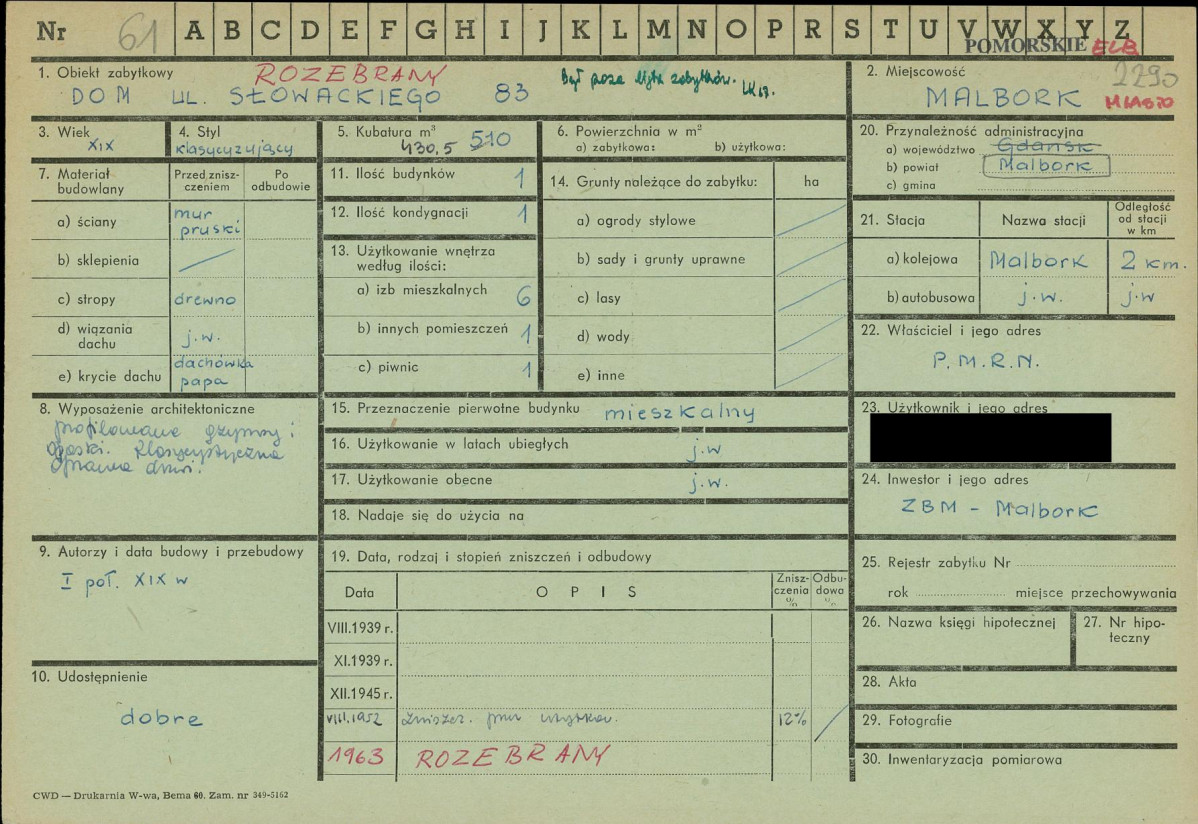 Nr 61 A B C D E F G H I J K L M N O P R S T U V W X Y Z
POMORSKIE ELB
1. Obiekt zabytkowy ROZEBRANY
Był poza
zabytków.
DOM UL. SŁOWACKIEGO 83
2. Miejscowość 2290
MALBORK MIASTO
3. Wiek
XIX
4. Styl
klasycyzujący
5. Kubatura m³
430,5 510
6. Powierzchnia w m²
a) zabytkowa: b) użytkowa:
20. Przynależność administracyjna
a) województwo Gdańsk
b) powiat Malbork
c) gmina
7. Materiał budowlany
Przed znisz-
czeniem
Po
odbudowie
a) ściany mur
pruski
b) sklepienia
c) stropy drewno
d) wiązania
dachu j.w.
e) krycie dachu dachówka
papa
11. Ilość budynków 1
12. Ilość kondygnacji 1
13. Użytkowanie wnętrza
według ilości:
a) izb mieszkalnych 6
b) innych pomieszczeń 1
c) piwnic 1
14. Grunty należące do zabytku: ha
a) ogrody stylowe
b) sady i grunty uprawne
c) lasy
d) wody
e) inne
21. Stacja Nazwa stacji Odległość
od stacji
w km
a) kolejowa Malbork 2 km.
b) autobusowa j.w. j.w
22. Właściciel i jego adres
P.M.R.N.
8. Wyposażenie architektoniczne
profilowane gzymsy i
opaski. Klasycystyczna
oprawa drzwi.
15. Przeznaczenie pierwotne budynku mieszkalny
16. Użytkowanie w latach ubiegłych j.w
17. Użytkowanie obecne j.w.
18. Nadaje się do użycia na
23. Użytkownik i jego adres
24. Inwestor i jego adres
ZBM - Malbork
9. Autorzy i data budowy i przebudowy
I poł. XIX w
19. Data, rodzaj i stopień zniszczeń i odbudowy
Data OPIS Znisz-
czenia
%
Odbu-
dowa
%
VIII.1939 r.
XI.1939 r.
XII.1945 r.
VIII.1952 zniszcz. 12%
1963 ROZEBRANY
25. Rejestr zabytku Nr
rok miejsce przechowywania
26. Nazwa księgi hipotecznej
27. Nr hipo-
teczny
10. Udostępnienie
dobre
28. Akta
29. Fotografie
30. Inwentaryzacja pomiarowa
CWD — Drukarnia W-wa, Bema 60. Zam. nr 349-5162